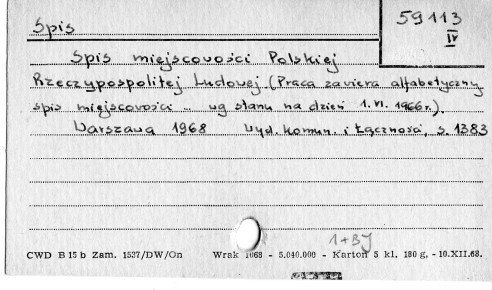 Spis
59113
IV
Spis miejscowości Polskiej
Rzeczypospolitej Ludowej (Praca zawiera alfabetyczny
spis miejscowości - wg stanu na dzień 1.VI.1966r.).
Warszawa 1968 Wyd. Komun. i Łączności, s. 1383
1+BJ
CWD B 15 b Zam. 1537/DW/On Wrak 1068 - 5.040.000 - Karton 5 kl. 180 g. - 10.XII.68.